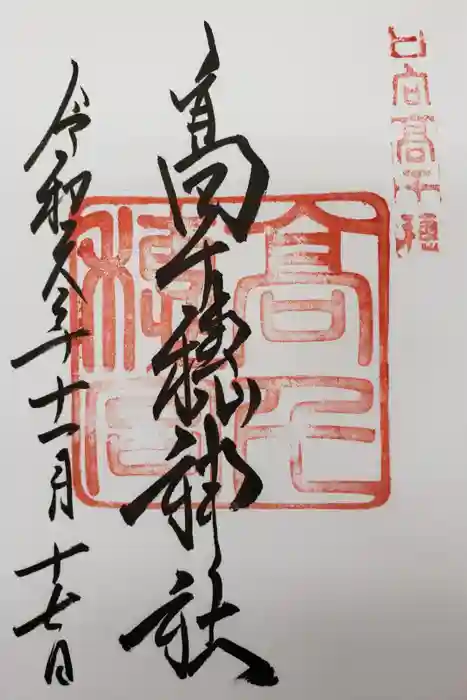 日向高千穂
高千穂神社
高千
穂
令和元年十一月十七日